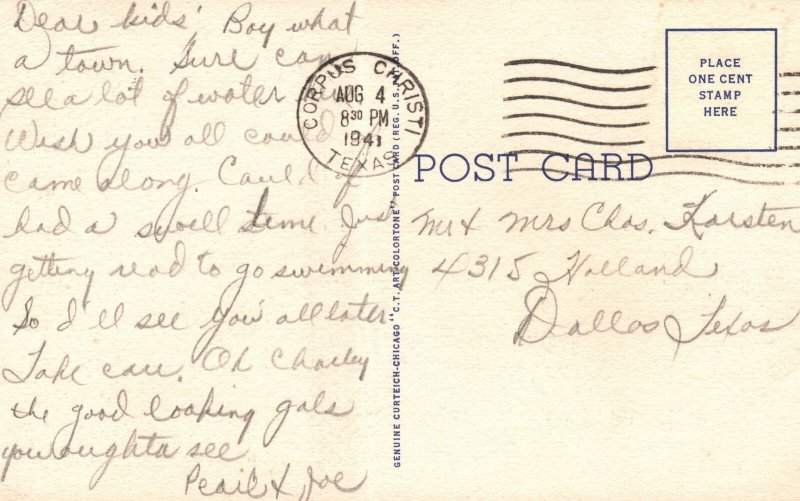 Dear kids' Boy what
a town. Sure can
see a lot of water
Wish you all could
came along. Could of
had a swell time. Just
getting read to go swimming
So I'll see you all later
Take care. Oh Charley
the good looking gals
you oughta see
Pearl & Joe
CORPUS CHRISTI
AUG 4
8 30 PM
1941
TEXAS
GENUINE CURTEICH-CHICAGO "C.T. ART-COLORTONE" POST CARD (REG. U.S. OFF.)
PLACE
ONE CENT
STAMP
HERE
POST CARD
Mr & Mrs Chas. Karsten
4315 Holland
Dallas Texas